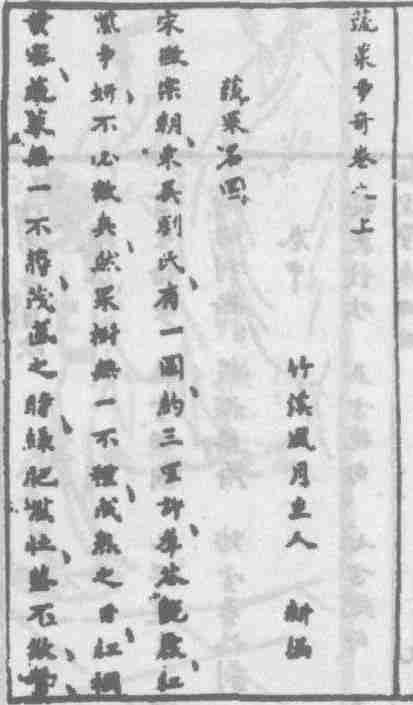 蔬果爭奇卷之上
竹溪風月主人 新編
蔬果名園
宋徽宗朝、東吳劉氏、有一園、約三里許、羣花鬬發、紅
紫爭妍、不必散矣、然果樹無一不種、成熟之日、紅稠
黃密、蔬菜無一不蒔、茂盛之時、綠肥紫壯、蓋不儉、